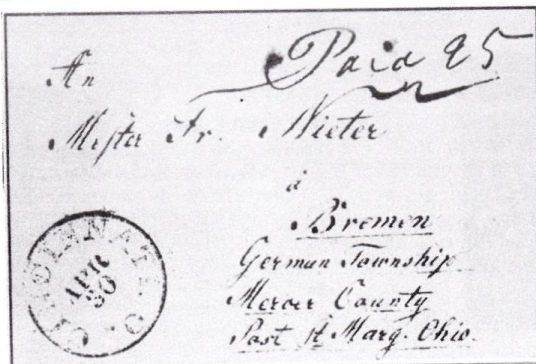 Paid 25
An
Mister Fr. Nieter
à
Bremen
German Township
Mercer County
Post St Mary. Ohio.
CINCINNATI. O.
APR
30